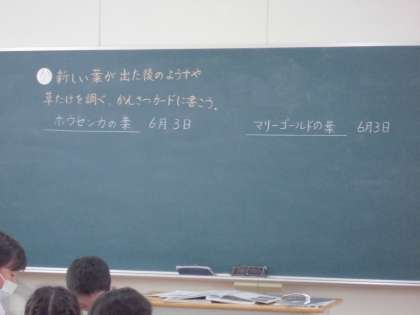 め 新しい葉が出た後のようすや
草たけを調べ、かんさつカードに書こう。
ホウセンカの葉 6月3日
マリーゴールドの葉 6月3日